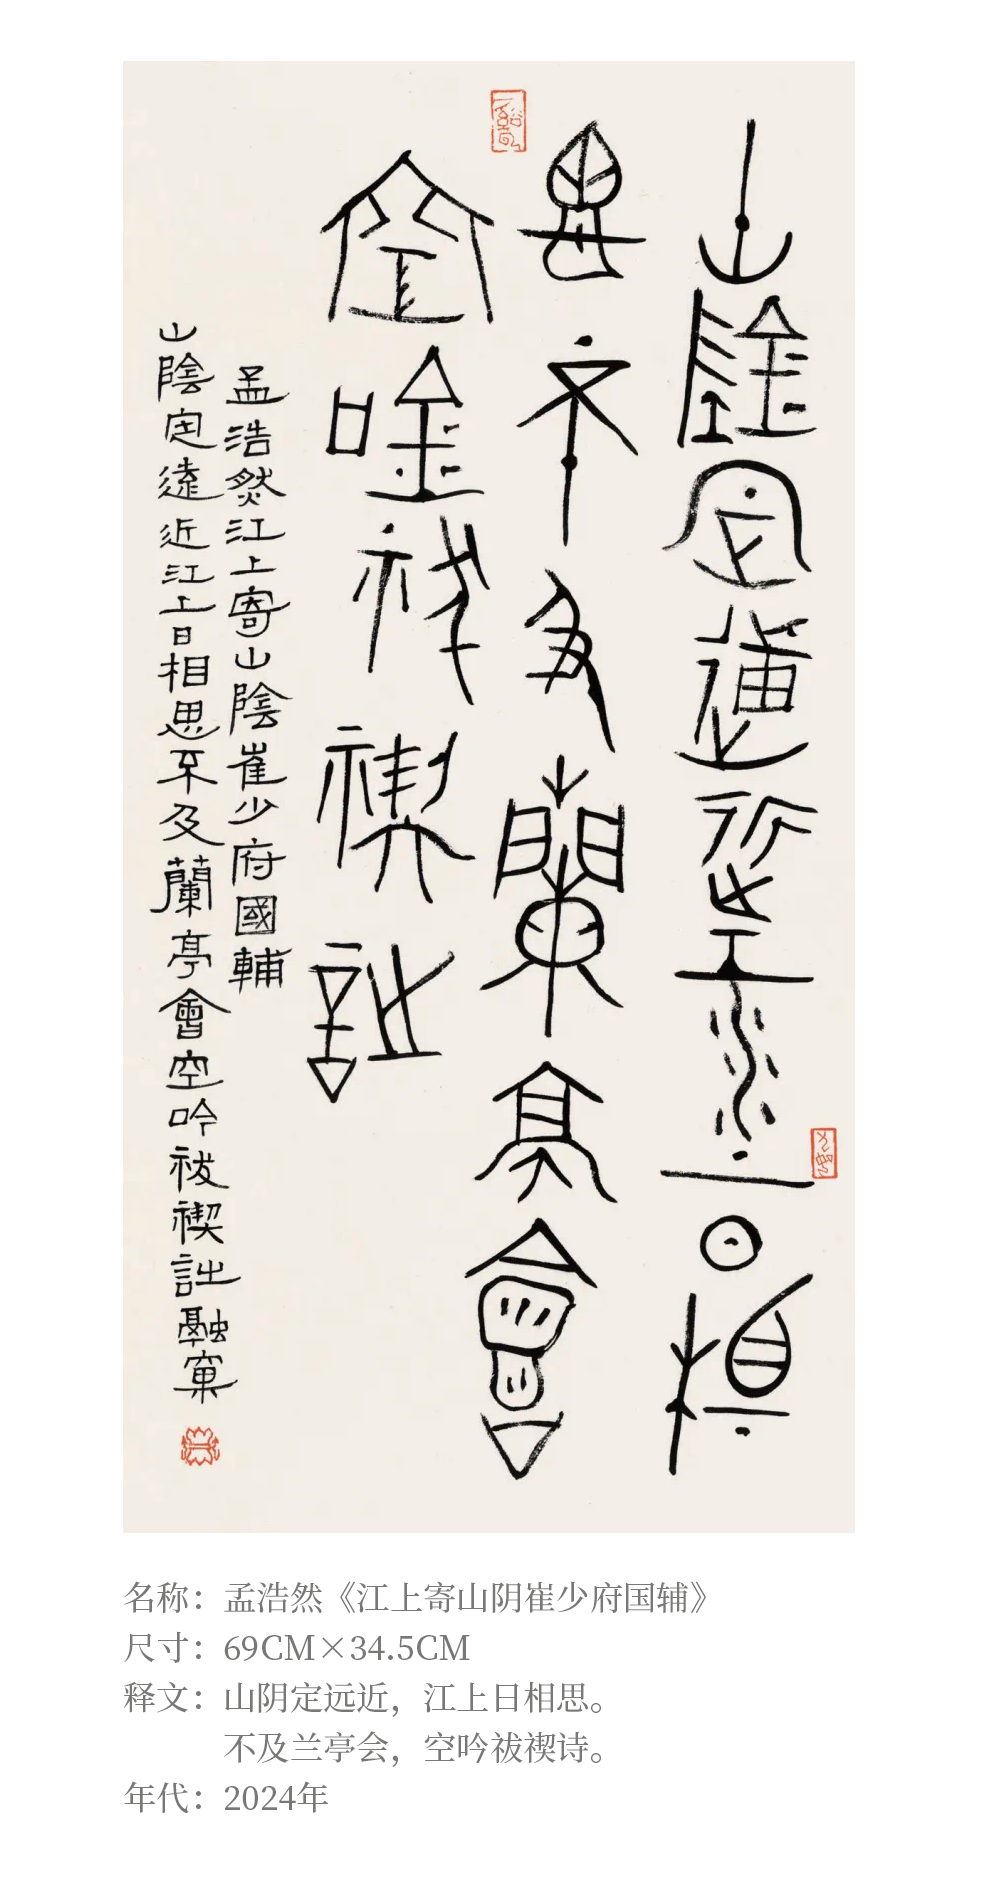 山陰定遠近江上日相
思不及蘭亭會
空吟祓禊詩
孟浩然江上寄山陰崔少府國輔
山陰定遠近江上日相思不及蘭亭會空吟祓禊詩融窠
名称：孟浩然《江上寄山阴崔少府国辅》
尺寸：69CM×34.5CM
释文：山阴定远近，江上日相思。
不及兰亭会，空吟祓禊诗。
年代：2024年